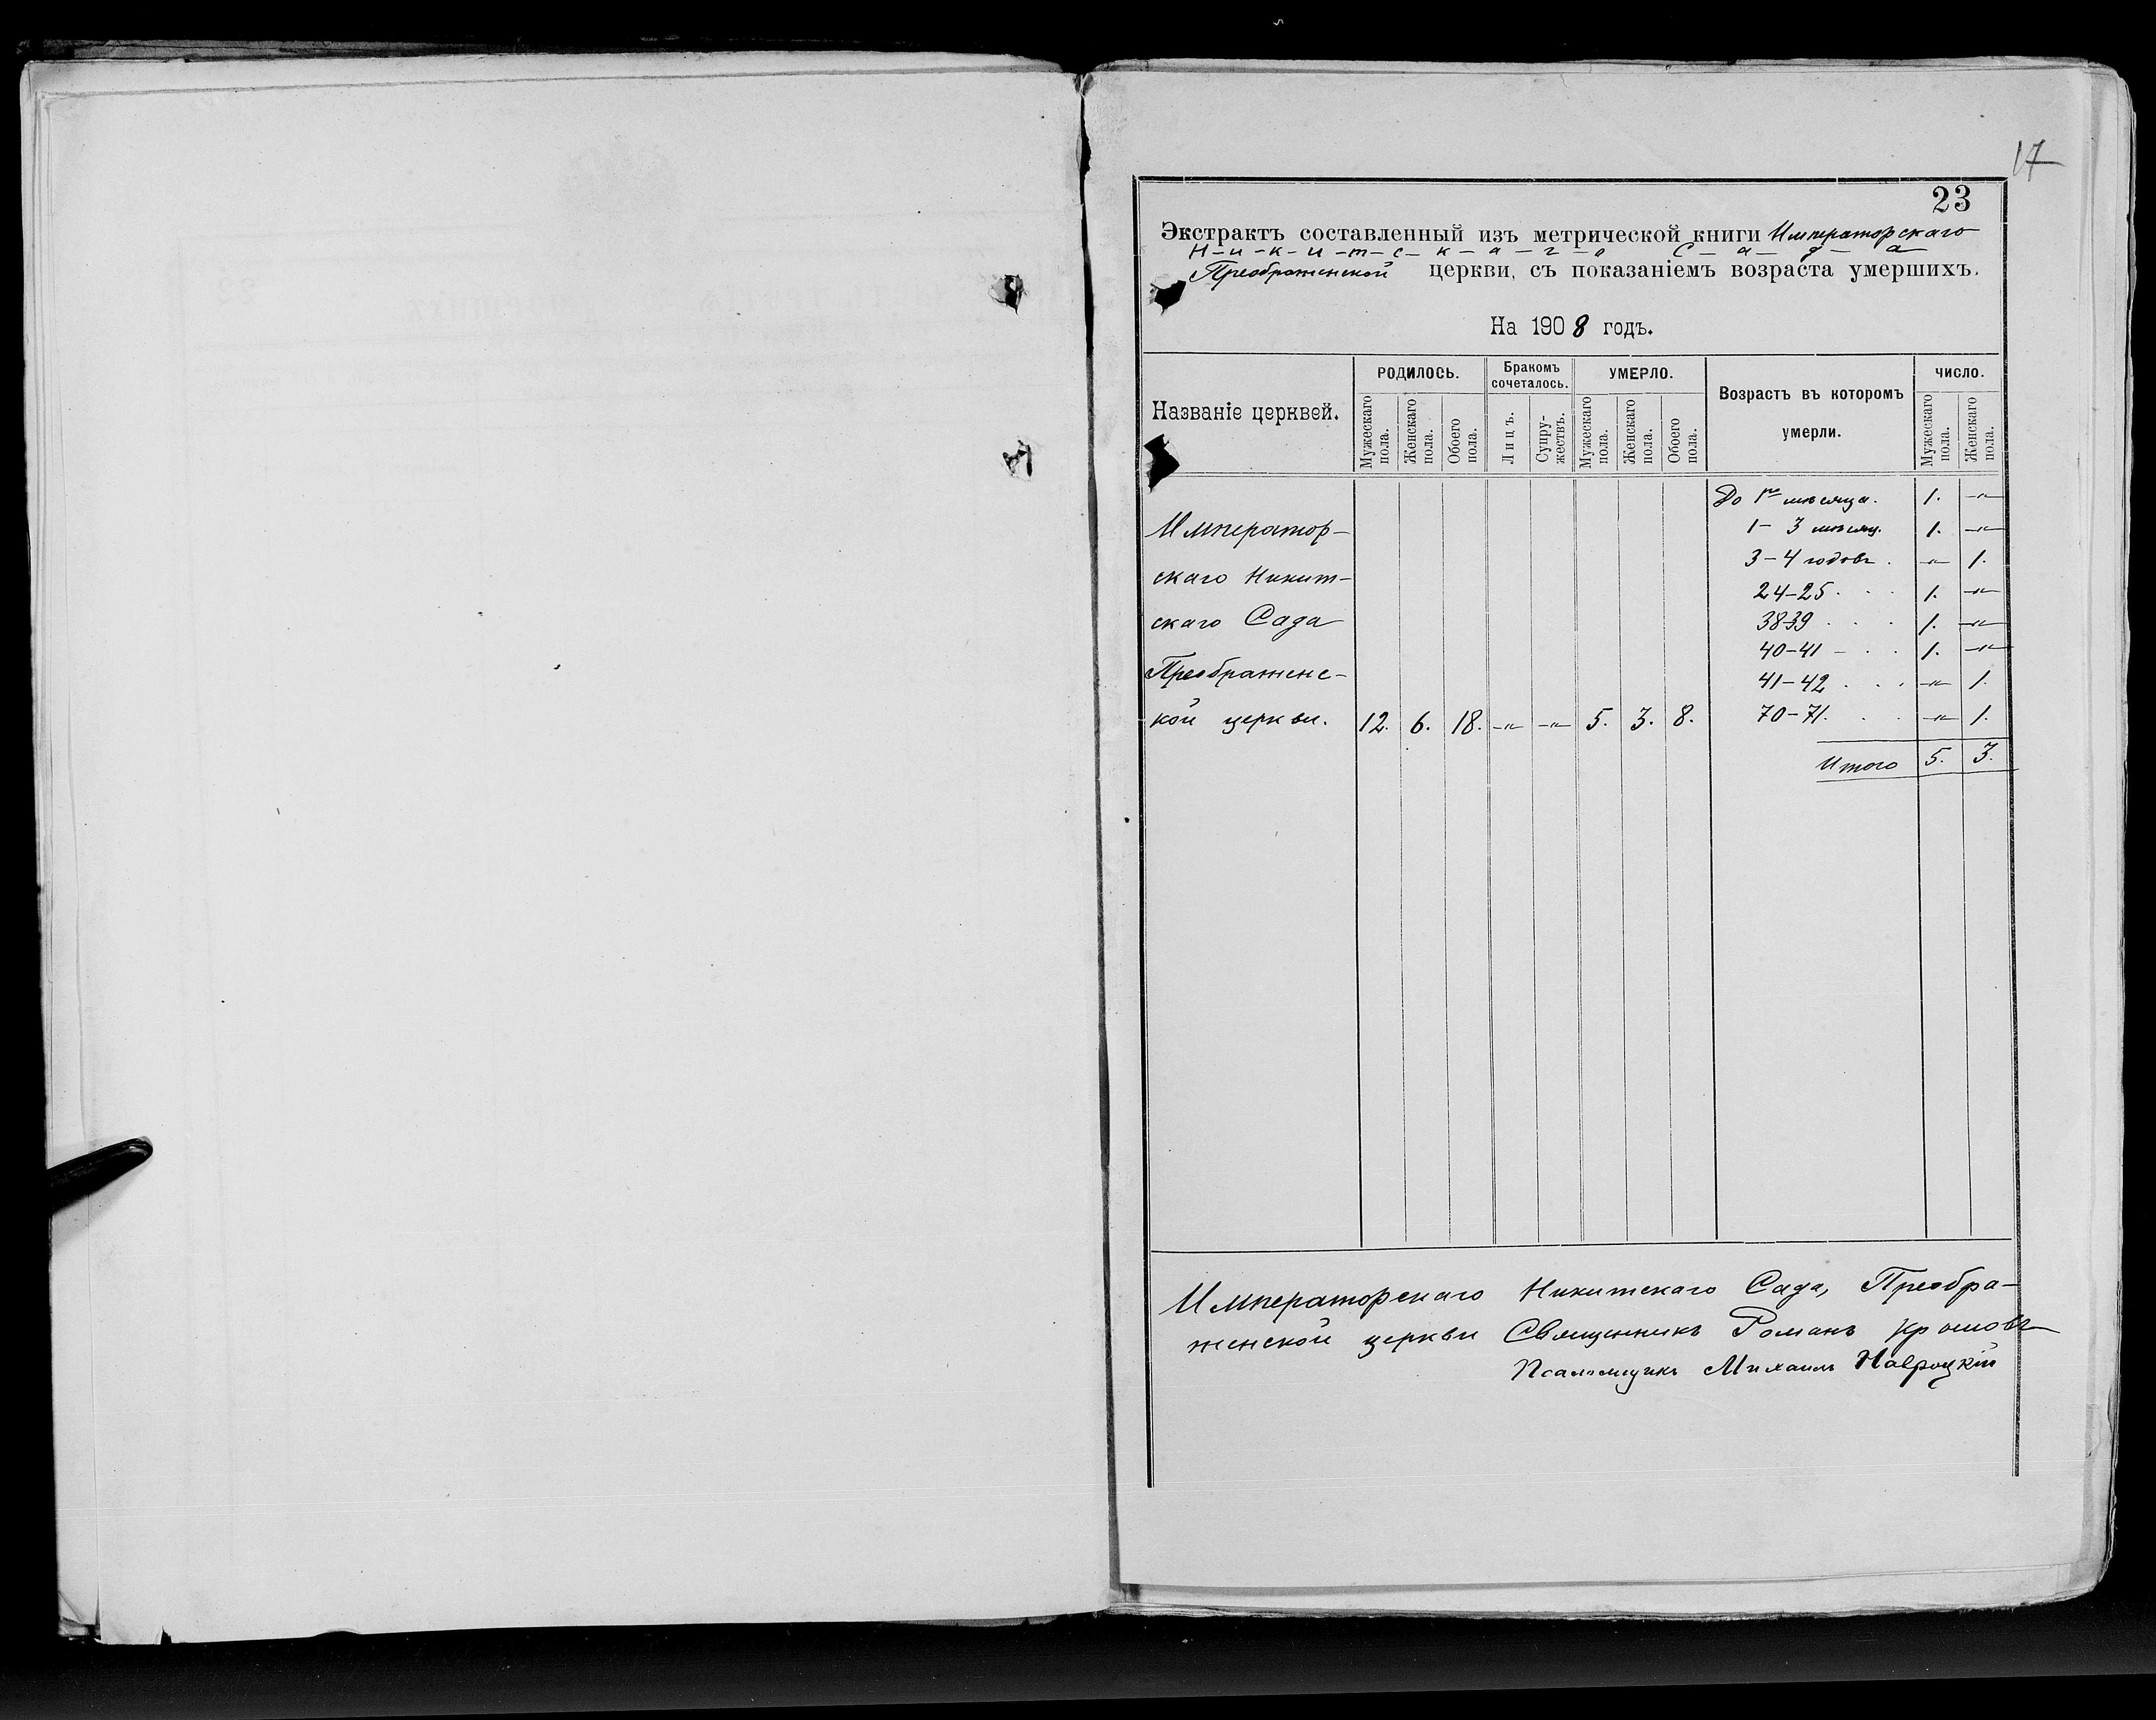 17
23
Экстрактъ составленный изъ метрической книги Императорскаго
Н-и-к-и-т-с-к-а-г-о С-а-д-а
Преображенской церкви, съ показаніемъ возраста умершихъ.
На 1908 годъ.
Названіе церквей.
РОДИЛОСЬ.
Мужескаго пола.
Женскаго пола.
Обоего пола.
Бракомъ сочеталось.
Лицъ.
Супружествъ.
УМЕРЛО.
Мужескаго пола.
Женскаго пола.
Обоего пола.
Возрастъ въ которомъ
умерли.
ЧИСЛО.
Мужескаго пола.
Женскаго пола.
До 1го мѣсяца. 1. -"-
1-3 мѣсяц. 1. -"-
3-4 годовъ. -"- 1.
24-25 . . . 1. -"-
38-39 . . . 1. -"-
40-41 - . . 1. -"-
41-42 . . . -"- 1.
70-71. . . -"- 1.
Итого 5. 3.
Император-
скаго Никит-
скаго Сада
Преображенс-
кой церкви. 12. 6. 18. -"- -"- 5. 3. 8.
Императорскаго Никитскаго Сада, Преобра-
женской церкви Священникъ Романъ
Псаломщикъ Михаилъ Навроцкій